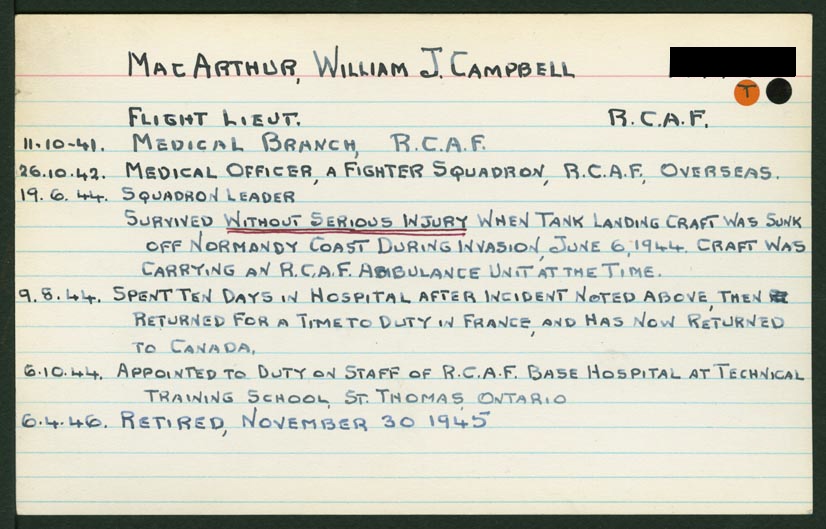 MacArthur, William J. Campbell
T
Flight Lieut. R.C.A.F.
11.10-41. Medical Branch, R.C.A.F.
26.10.42. Medical Officer, a Fighter Squadron, R.C.A.F., Overseas.
19.6.44. Squadron Leader
Survived without serious injury when tank landing craft was sunk
off Normandy Coast during invasion, June 6, 1944. Craft was
carrying an R.C.A.F. Ambulance Unit at the time.
9.8.44. Spent ten days in hospital after incident noted above, then
returned for a time to duty in France, and has now returned
to Canada.
6.10.44. Appointed to duty on staff of R.C.A.F. Base Hospital at Technical
Training School, St. Thomas, Ontario
6.4.46. Retired, November 30 1945